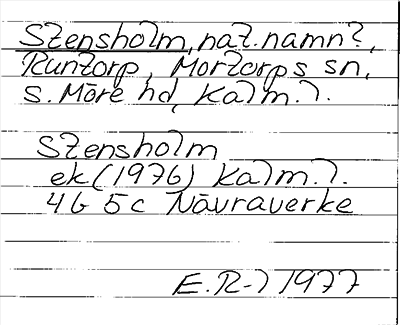 Stensholm, nat.namn?,
Runtorp, Mortorps sn,
S. Möre hd, Kalm.l.
Stensholm
ek (1976) Kalm.l.
4G 5c Nävraverke
E.R-l 1977